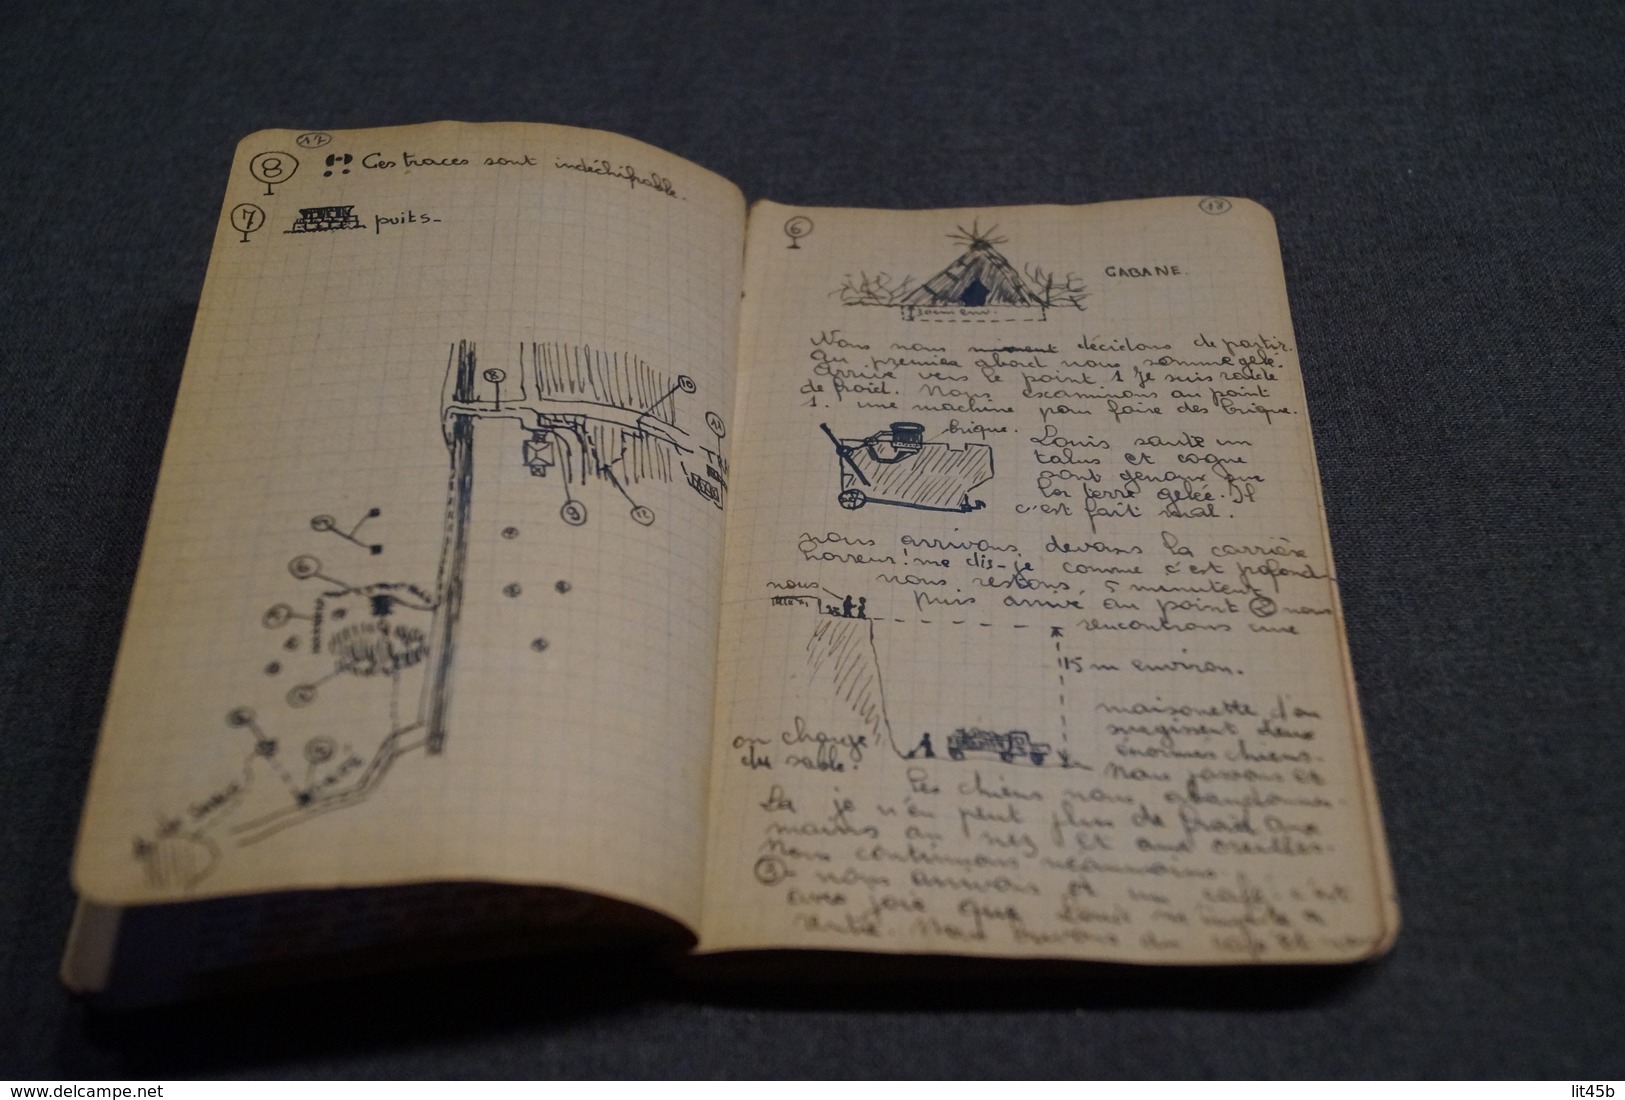 17
8 Ces traces sont indéchifrable.
7 puits-
8
10
9
12
6
18
6
CABANE.
Nous nous décidons de partir.
Au premier abord nous somme gelé.
Arrivé vers le point 1 je suis
de froid. Nous examinons au point
1. une machine pour faire des brique.
brique.
Louis saute un
talus et cogne
sont genoux sur
la terre gelée. Il
c'est fait mal.
nous arrivons devans la carrière
horreur! me dis-je comme c'est profond.
nous restons 5 minutent
nous
puis arrivé au point 2 nous
rencontrons une
15 m environ.
maisonette d'ou
surgissent deux
énormes chiens.
on charge
du sable.
Nous
Les chiens nous abandonnes.
La je n'en peut plus de froid aux
mains au nez et aux oreilles.
Nous continuons néanmoins.
3 nous arrivons et un café c'est
avec joie que
Nous
www.delcampe.net
lit45b